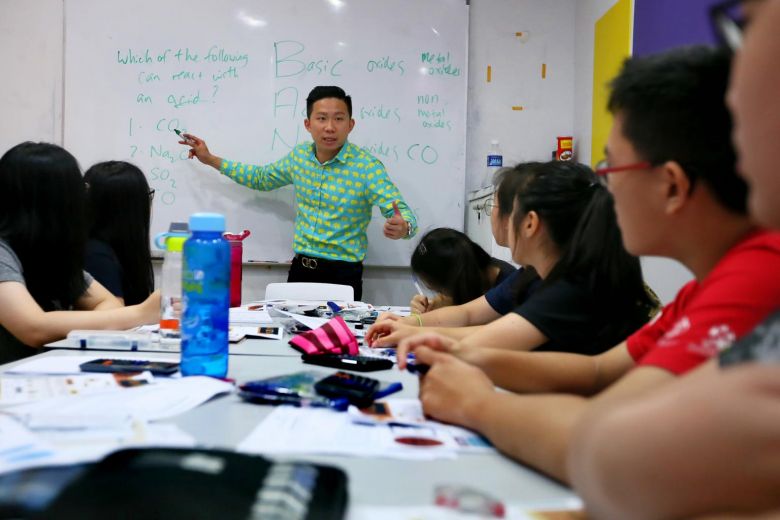 Which of the following
can react with
an acid?
1. CO
2. Na
SO2
O
Basic oxides metal
oxides
A oxides non
metal
oxides
N oxides CO